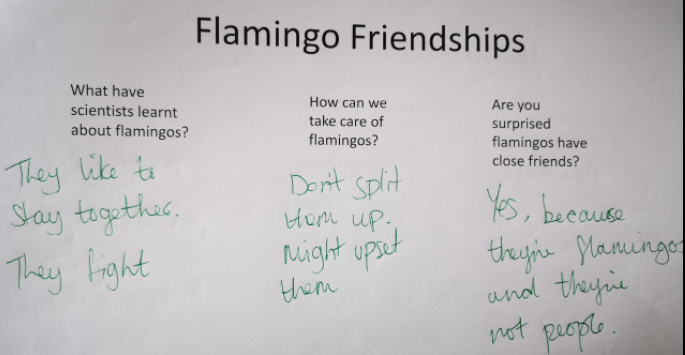 Flamingo Friendships
What have
scientists learnt
about flamingos?
They like to
stay together.
They fight
How can we
take care of
flamingos?
Don't split
them up.
Might upset
them
Are you
surprised
flamingos have
close friends?
Yes, because
they're flamingos
and they're
not people.